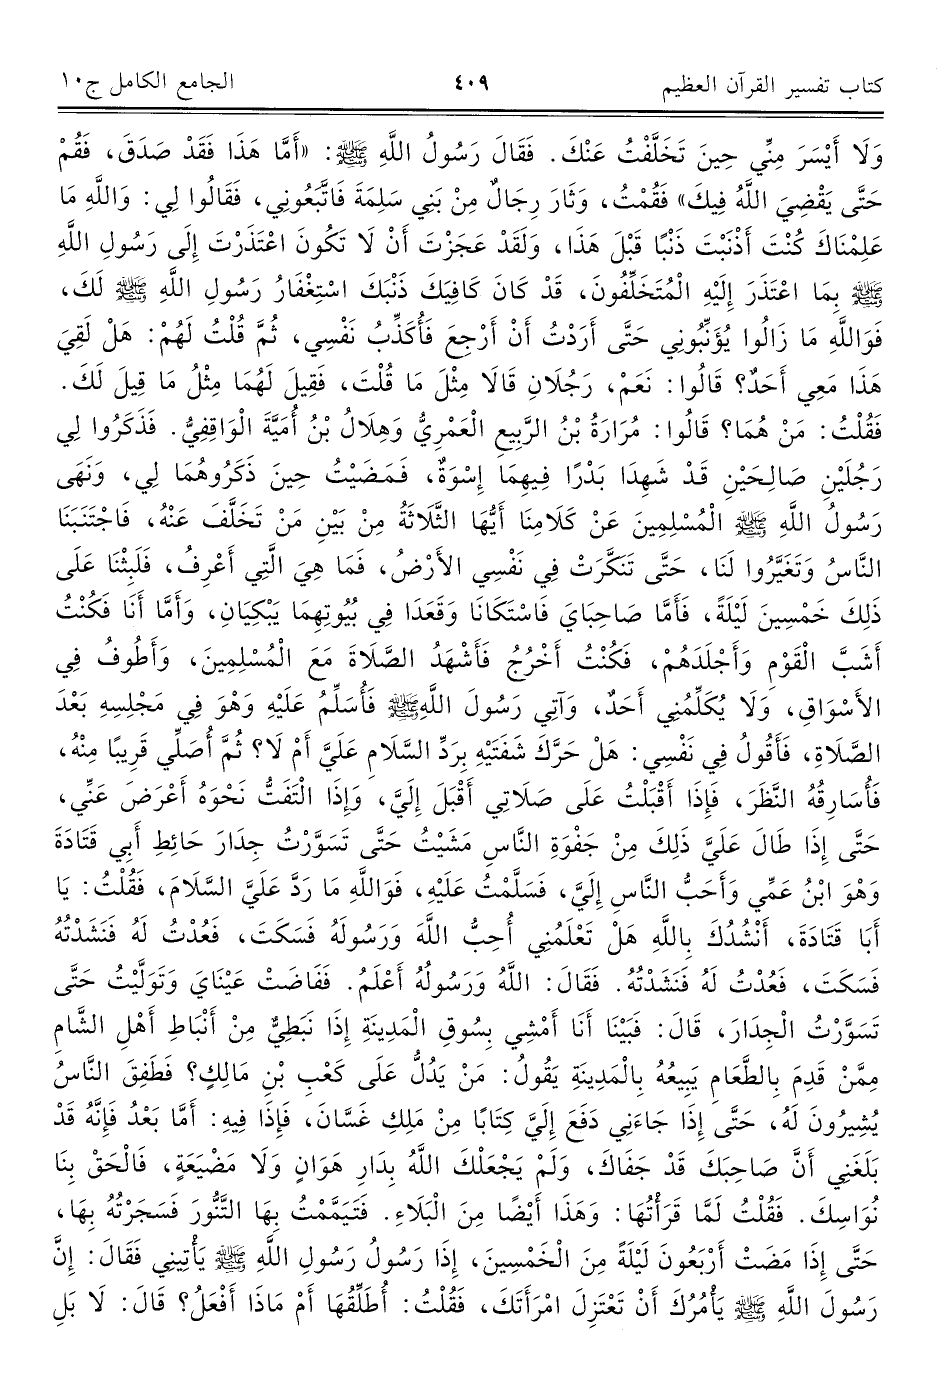 كتاب تفسير القرآن العظيم ٤٠٩ الجامع الكامل ج١٠
وَلَا أَيْسَرَ مِنِّي حِينَ تَخَلَّفْتُ عَنْكَ. فَقَالَ رَسُولُ اللَّهِ ﷺ: «أَمَّا هَذَا فَقَدْ صَدَقَ، فَقُمْ
حَتَّى يَقْضِيَ اللَّهُ فِيكَ» فَقُمْتُ، وَثَارَ رِجَالٌ مِنْ بَنِي سَلِمَةَ فَاتَّبَعُونِي، فَقَالُوا لِي: وَاللَّهِ مَا
عَلِمْنَاكَ كُنْتَ أَذْنَبْتَ ذَنْبًا قَبْلَ هَذَا، وَلَقَدْ عَجَزْتَ أَنْ لَا تَكُونَ اعْتَذَرْتَ إِلَى رَسُولِ اللَّهِ
ﷺ بِمَا اعْتَذَرَ إِلَيْهِ الْمُتَخَلِّفُونَ، قَدْ كَانَ كَافِيَكَ ذَنْبَكَ اسْتِغْفَارُ رَسُولِ اللَّهِ ﷺ لَكَ،
فَوَاللَّهِ مَا زَالُوا يُؤَنِّبُونِي حَتَّى أَرَدْتُ أَنْ أَرْجِعَ فَأُكَذِّبُ نَفْسِي، ثُمَّ قُلْتُ لَهُمْ: هَلْ لَقِيَ
هَذَا مَعِي أَحَدٌ؟ قَالُوا: نَعَمْ، رَجُلَانِ قَالَا مِثْلَ مَا قُلْتَ، فَقِيلَ لَهُمَا مِثْلُ مَا قِيلَ لَكَ.
فَقُلْتُ: مَنْ هُمَا؟ قَالُوا: مُرَارَةُ بْنُ الرَّبِيعِ الْعَمْرِيُّ وَهِلَالُ بْنُ أُمَيَّةَ الْوَاقِفِيُّ. فَذَكَرُوا لِي
رَجُلَيْنِ صَالِحَيْنِ قَدْ شَهِدَا بَدْرًا فِيهِمَا إِسْوَةٌ، فَمَضَيْتُ حِينَ ذَكَرُوهُمَا لِي، وَنَهَى
رَسُولُ اللَّهِ ﷺ الْمُسْلِمِينَ عَنْ كَلَامِنَا أَيُّهَا الثَّلَاثَةُ مِنْ بَيْنِ مَنْ تَخَلَّفَ عَنْهُ، فَاجْتَنَبَنَا
النَّاسُ وَتَغَيَّرُوا لَنَا، حَتَّى تَنَكَّرَتْ فِي نَفْسِي الأَرْضُ، فَمَا هِيَ الَّتِي أَعْرِفُ، فَلَبِثْنَا عَلَى
ذَلِكَ خَمْسِينَ لَيْلَةً، فَأَمَّا صَاحِبَايَ فَاسْتَكَانَا وَقَعَدَا فِي بُيُوتِهِمَا يَبْكِيَانِ، وَأَمَّا أَنَا فَكُنْتُ
أَشَبَّ الْقَوْمِ وَأَجْلَدَهُمْ، فَكُنْتُ أَخْرُجُ فَأَشْهَدُ الصَّلَاةَ مَعَ الْمُسْلِمِينَ، وَأَطُوفُ فِي
الأَسْوَاقِ، وَلَا يُكَلِّمُنِي أَحَدٌ، وَآتِي رَسُولَ اللَّهِ ﷺ فَأُسَلِّمُ عَلَيْهِ وَهْوَ فِي مَجْلِسِهِ بَعْدَ
الصَّلَاةِ، فَأَقُولُ فِي نَفْسِي: هَلْ حَرَّكَ شَفَتَيْهِ بِرَدِّ السَّلَامِ عَلَيَّ أَمْ لَا؟ ثُمَّ أُصَلِّي قَرِيبًا مِنْهُ،
فَأُسَارِقُهُ النَّظَرَ، فَإِذَا أَقْبَلْتُ عَلَى صَلَاتِي أَقْبَلَ إِلَيَّ، وَإِذَا الْتَفَتُّ نَحْوَهُ أَعْرَضَ عَنِّي،
حَتَّى إِذَا طَالَ عَلَيَّ ذَلِكَ مِنْ جَفْوَةِ النَّاسِ مَشَيْتُ حَتَّى تَسَوَّرْتُ جِدَارَ حَائِطِ أَبِي قَتَادَةَ
وَهْوَ ابْنُ عَمِّي وَأَحَبُّ النَّاسِ إِلَيَّ، فَسَلَّمْتُ عَلَيْهِ، فَوَاللَّهِ مَا رَدَّ عَلَيَّ السَّلَامَ، فَقُلْتُ: يَا
أَبَا قَتَادَةَ، أَنْشُدُكَ بِاللَّهِ هَلْ تَعْلَمُنِي أُحِبُّ اللَّهَ وَرَسُولَهُ فَسَكَتَ، فَعُدْتُ لَهُ فَنَشَدْتُهُ
فَسَكَتَ، فَعُدْتُ لَهُ فَنَشَدْتُهُ. فَقَالَ: اللَّهُ وَرَسُولُهُ أَعْلَمُ. فَفَاضَتْ عَيْنَايَ وَتَوَلَّيْتُ حَتَّى
تَسَوَّرْتُ الْجِدَارَ، قَالَ: فَبَيْنَا أَنَا أَمْشِي بِسُوقِ الْمَدِينَةِ إِذَا نَبَطِيٌّ مِنْ أَنْبَاطِ أَهْلِ الشَّامِ
مِمَّنْ قَدِمَ بِالطَّعَامِ يَبِيعُهُ بِالْمَدِينَةِ يَقُولُ: مَنْ يَدُلُّ عَلَى كَعْبِ بْنِ مَالِكٍ؟ فَطَفِقَ النَّاسُ
يُشِيرُونَ لَهُ، حَتَّى إِذَا جَاءَنِي دَفَعَ إِلَيَّ كِتَابًا مِنْ مَلِكِ غَسَّانَ، فَإِذَا فِيهِ: أَمَّا بَعْدُ فَإِنَّهُ قَدْ
بَلَغَنِي أَنَّ صَاحِبَكَ قَدْ جَفَاكَ، وَلَمْ يَجْعَلْكَ اللَّهُ بِدَارِ هَوَانٍ وَلَا مَضْيَعَةٍ، فَالْحَقْ بِنَا
نُوَاسِكَ. فَقُلْتُ لَمَّا قَرَأْتُهَا: وَهَذَا أَيْضًا مِنَ الْبَلَاءِ. فَتَيَمَّمْتُ بِهَا التَّنُّورَ فَسَجَرْتُهُ بِهَا،
حَتَّى إِذَا مَضَتْ أَرْبَعُونَ لَيْلَةً مِنَ الْخَمْسِينَ، إِذَا رَسُولُ رَسُولِ اللَّهِ ﷺ يَأْتِينِي فَقَالَ: إِنَّ
رَسُولَ اللَّهِ ﷺ يَأْمُرُكَ أَنْ تَعْتَزِلَ امْرَأَتَكَ، فَقُلْتُ: أُطَلِّقُهَا أَمْ مَاذَا أَفْعَلُ؟ قَالَ: لَا بَلِ